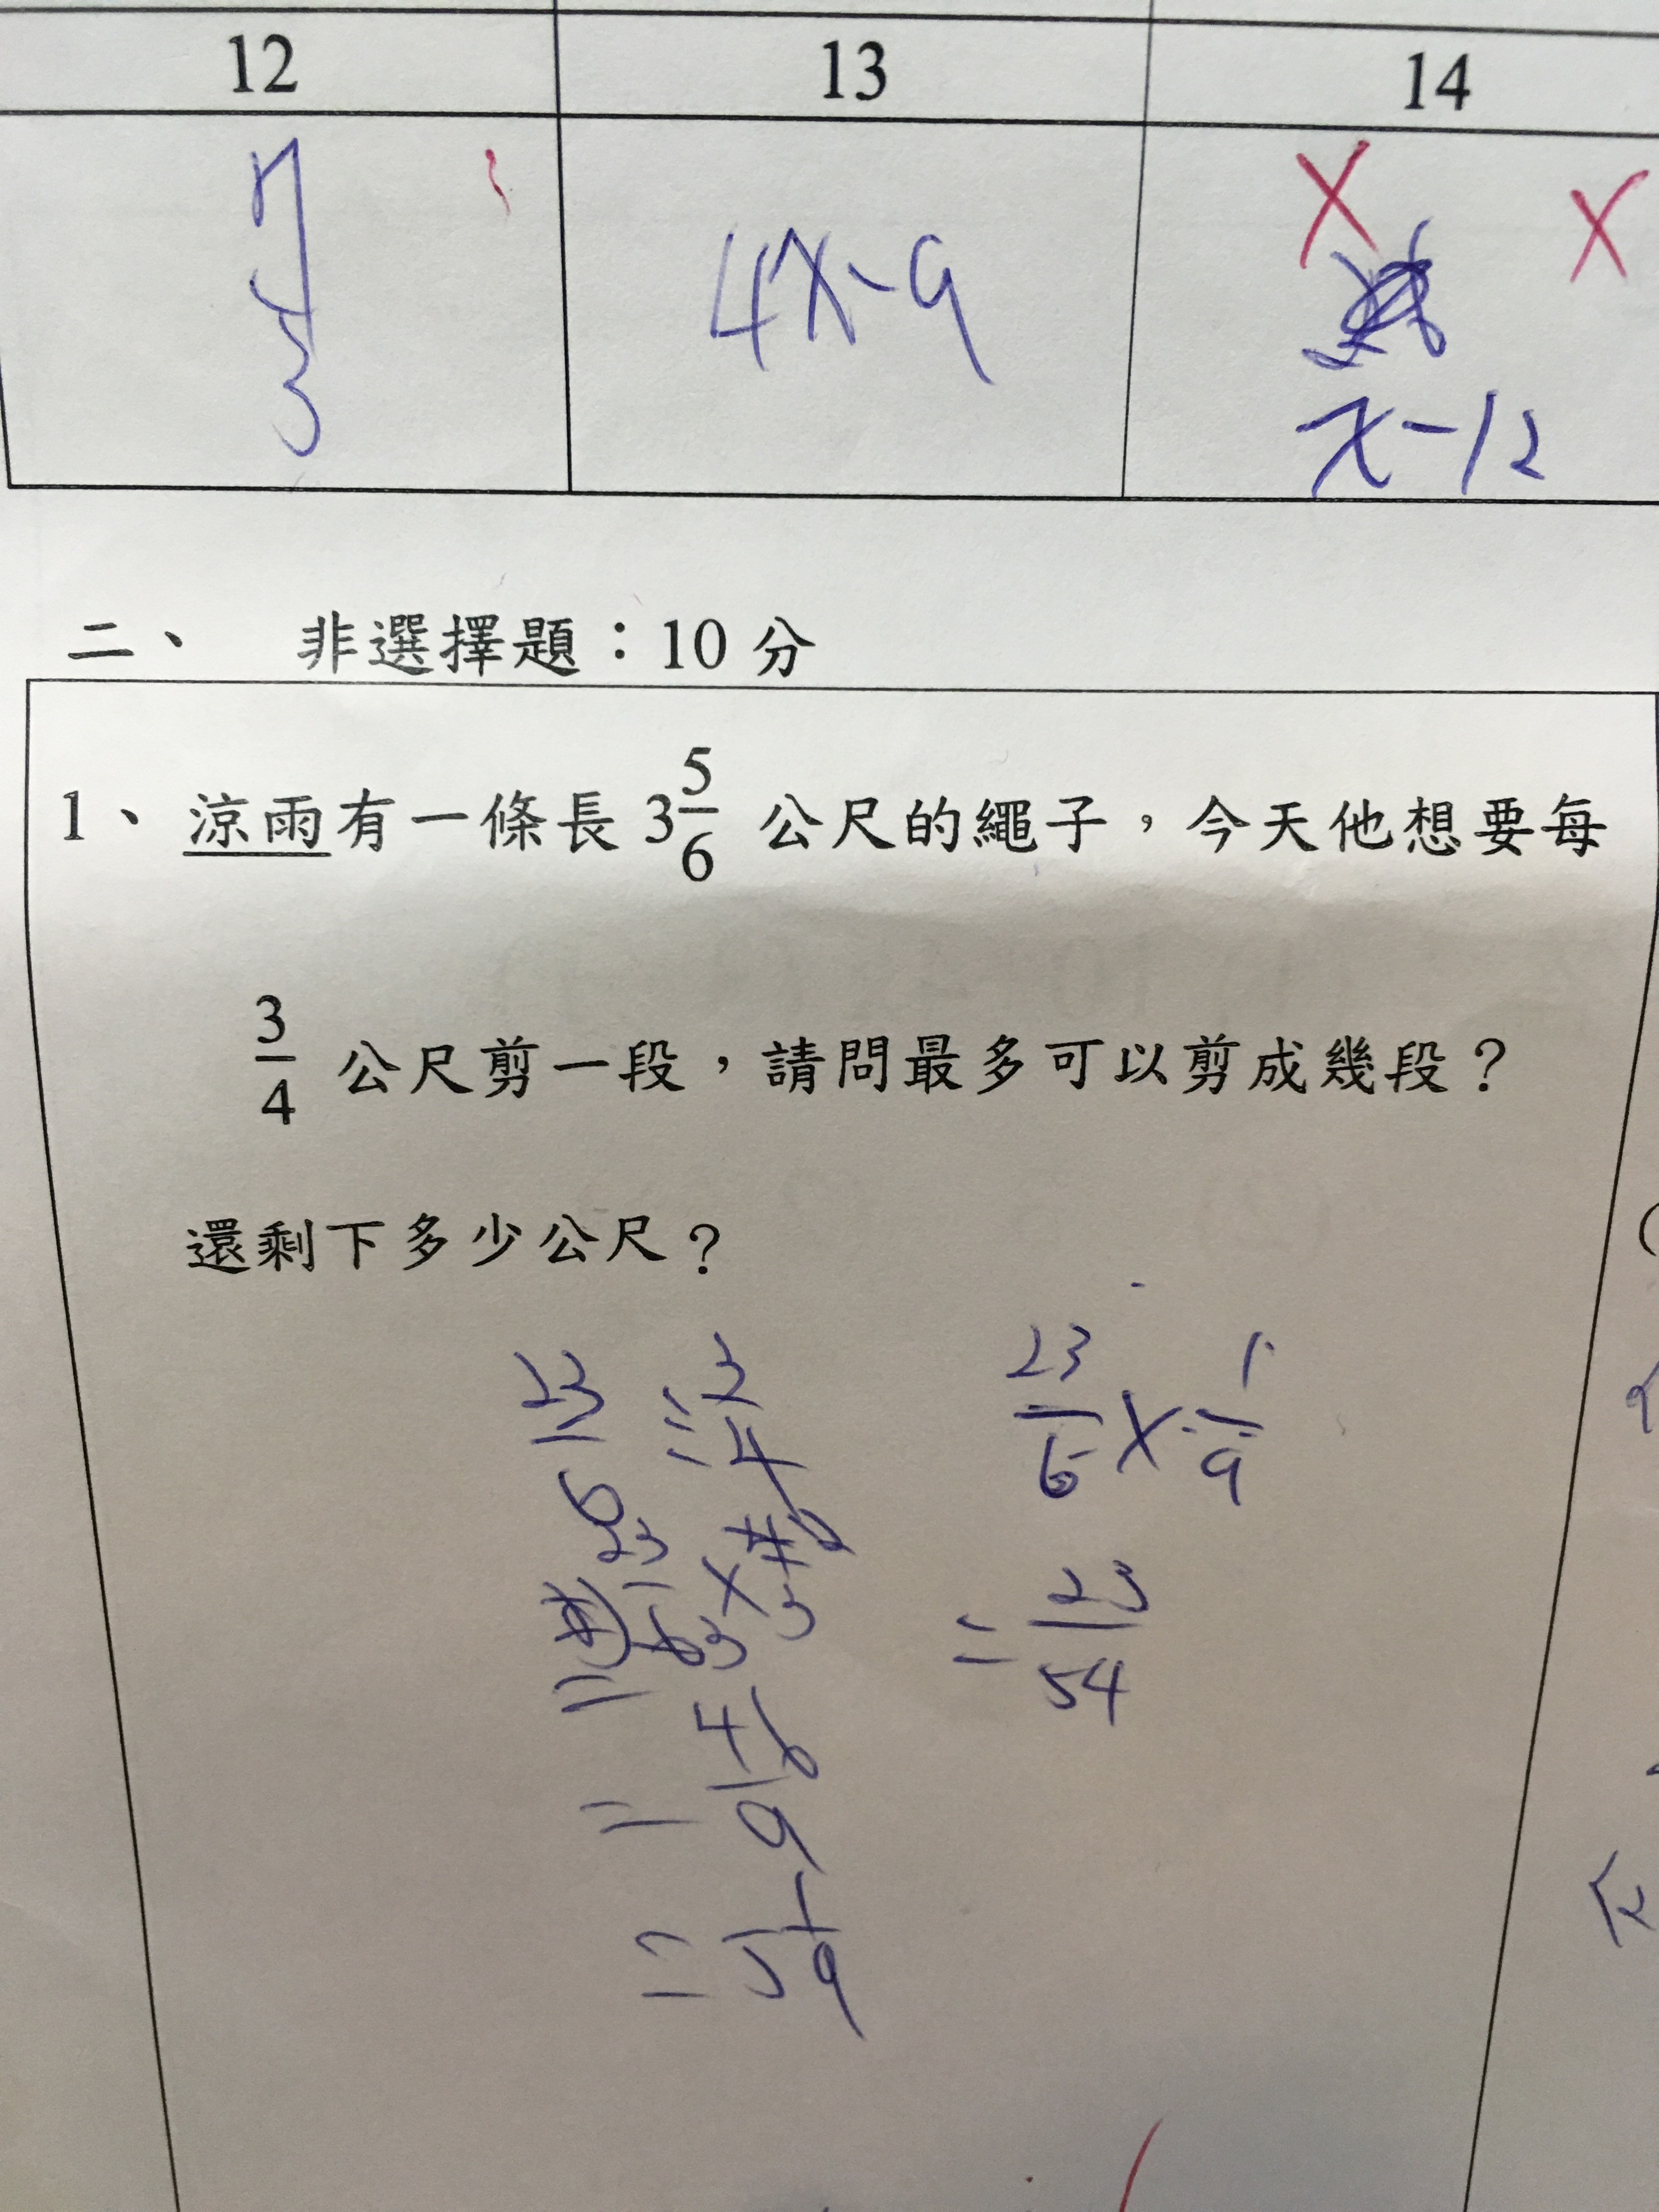 12 13 14
4x-9 x-12
二、 非選擇題：10 分
1、涼雨有一條長 3 5/6 公尺的繩子，今天他想要每
3/4 公尺剪一段，請問最多可以剪成幾段？
還剩下多少公尺？
23/6 ÷ 3/4
= 23/6 × 4/3
= 46/9
= 5 1/9
23/6 × 1/9
= 23/54